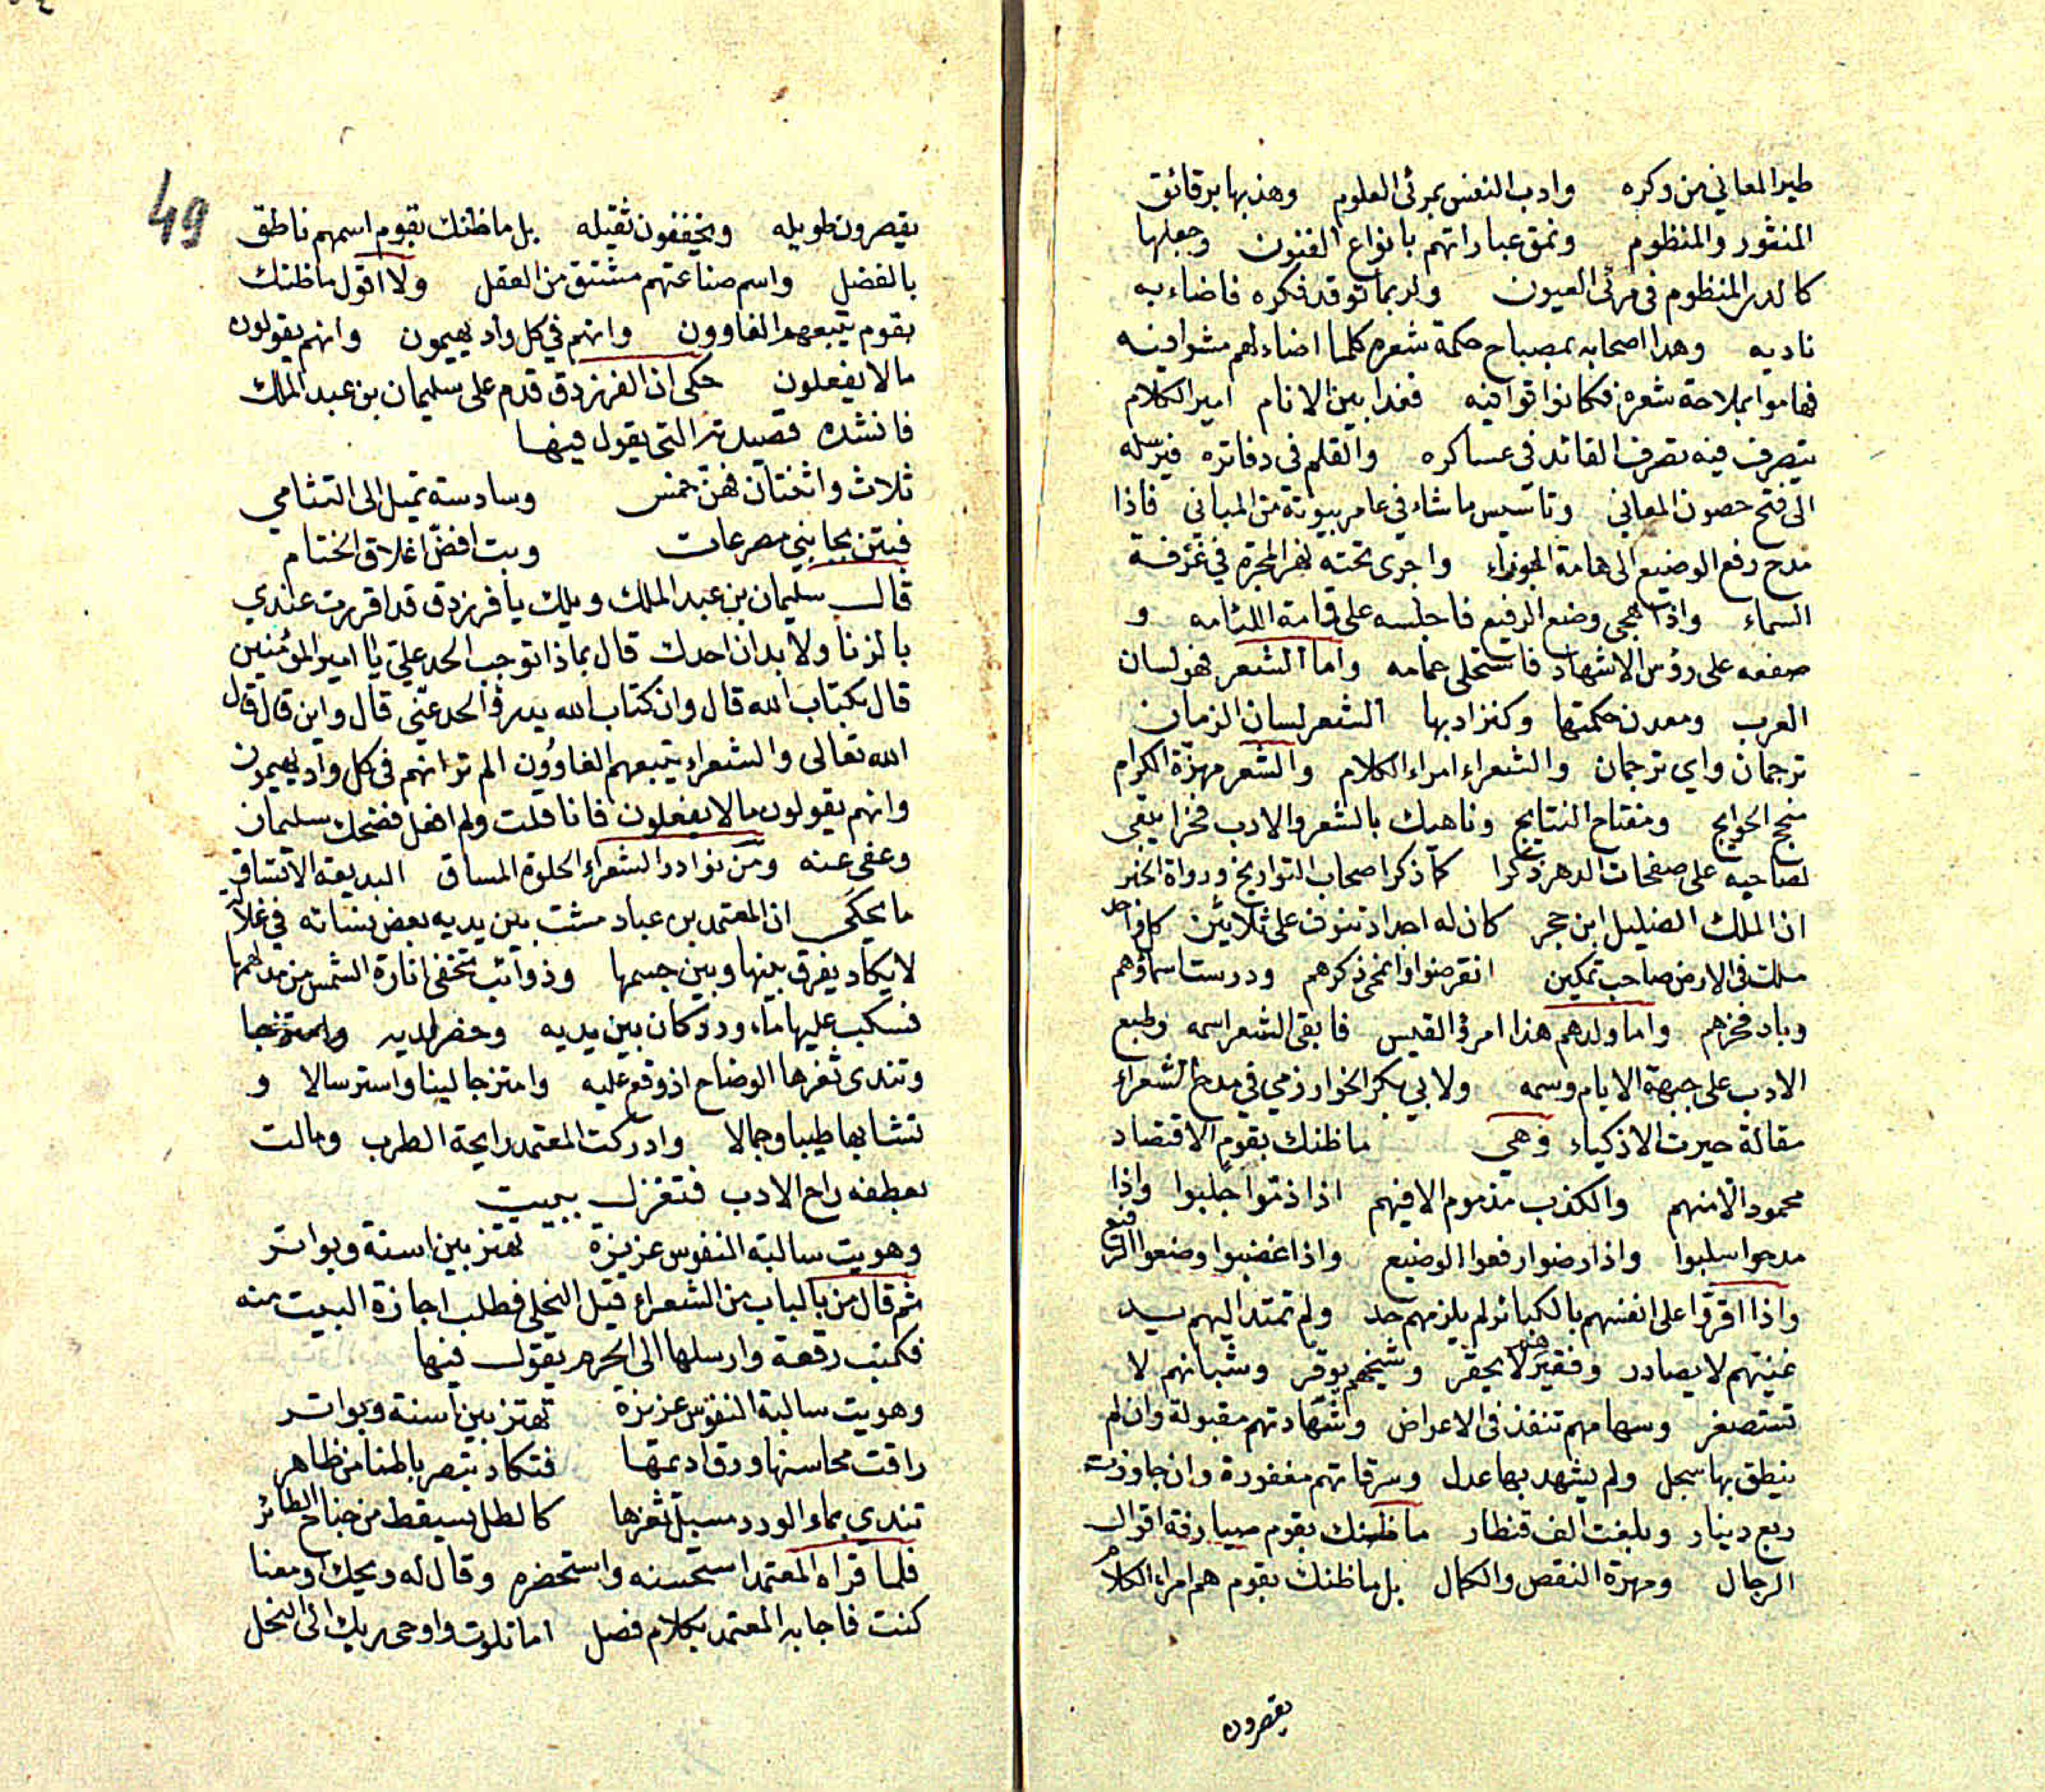 طير المعاني من وكره وادب النفس بمرئى العلوم وهذبها برقائق
المنثور والمنظوم ونمق عباراتهم بانواع الفنون وجعلها
كالدر المنظوم فى مرئى العيون ولربما توقد فكره فاضاء به
ناديه وهدا اصحابه بمصباح حكمة شعره كلما اضاء لهم مشوا فيه
فهاموا بملاحة شعره فكانوا قوافيه فغدا بين الانام امير الكلام
يتصرف فيه تصرف القائد فى عساكره والقلم في دفاتره فيرسله
الى فتح حصون المعاني وتاسيس ما شاء في عامر بيوته من المباني فاذا
مدح رفع الوضيع الى هامة الجوزاء واجرى تحته نهر المجرة في غرفة
السماء واذا هجى وضع الرفيع فاجلسه على قامة اللثامه و
صفعه على رؤس الاشهاد فاستحلى عمامه واما الشعر فهو لسان
العرب ومعدن حكمتها وكنز ادبها الشعر لسان الزمان
ترجمان واي ترجمان والشعراء امراء الكلام والشعر مهزة الكرام
منجح الحوايج ومفتاح النتايج وناهيك بالشعر والادب فخرا يبقى
لصاحبه على صفحات الدهر ذكرا كما ذكر اصحاب التواريخ ورواة الخبر
ان الملك الضليل ابن حجر كان له اجداد تنوف على ثلاثين كل واحد
ملك فى الارض صاحب تمكين انقرضوا وانمحى ذكرهم ودرست اسماؤهم
وباد فخرهم واما ولدهم هذا امرؤ القيس فابقى الشعر اسمه وطبع
الادب على جبهة الايام وسمه ولابي بكر الخوارزمي في مدح الشعراء
مقالة حيرت الاذكياء وهي ما ظنك بقوم الاقتصاد
محمود الا منهم والكذب مذموم الا فيهم اذا ذموا جلبوا واذا
مدحوا سلبوا واذا رضوا رفعوا الوضيع واذا غضبوا وضعوا الرفيع
واذا اقروا على انفسهم بالكبائر لم يلزمهم حد ولم تمتد اليهم يد
غنيهم لا يصادر وفقيرهم لا يحقر وشيخهم يوقر وشبانهم لا
تستصغر وسهامهم تنفذ فى الاعراض وشهادتهم مقبولة وان لم
ينطق بها سجل ولم يشهد بها عدل وسرقاتهم مغفورة وان جاوزت
ربع دينار وبلغت الف قنطار ما ظنك بقوم صيارفة اقوال
الرجال ومهرة النقص والكمال بل ما ظنك بقوم هم امراء الكلام
يقصرون
49
يقصرون طويله ويخففون ثقيله بل ما ظنك بقوم اسمهم ناطق
بالفضل واسم صناعتهم مشتق من العقل ولا اقول ما ظنك
بقوم يتبعهم الغاوون وانهم في كل واد يهيمون وانهم يقولون
مالا يفعلون حكى ان الفرزدق قدم على سليمان بن عبد الملك
فانشده قصيدته التى يقول فيها
ثلاث واثنتان فهن خمس وسادسة تميل الى التثامي
فبتن بجانبي مصرعات وبت افض اغلاق الختام
قال سليمان بن عبد الملك ويلك يا فرزدق قد اقررت عندي
بالزنا ولا بد ان احدك قال بماذا توجب الحد علي يا امير المؤمنين
قال بكتاب الله قال وان كتاب الله يدرؤ الحد عني قال واين قال قال
الله تعالى والشعراء يتبعهم الغاوون الم تر انهم فى كل واد يهيمون
وانهم يقولون مالا يفعلون فانا قلت ولم افعل فضحك سليمان
وعفى عنه ومن نوادر الشعراء الحلوة المساق البديعة الاتساق
ما يحكى ان المعتمد بن عباد مشت بين يديه بعض نسائه في غلالة
لا يكاد يفرق بينها وبين جسمها وذوائب تخفى انارة الشمس من مدلهمها
فسكب عليها ماء ورد كان بين يديه وحضر لديه وامتزجا
وتندى ثغرها الوضاح اذ وقع عليه وامتزجا لينا واسترسالا و
تشابها طيبا وجمالا وادركت المعتمد رايحة الطرب ومالت
بعطفه راح الادب فتغزل ببيت
وهويت سالبة النفوس عزيزة تهتز بين اسنة وبواتر
ثم قال من بالباب من الشعراء قيل النحلى فطلب اجازة البيت منه
فكتب رقعة وارسلها الى الحرم يقول فيها
وهويت سالبة النفوس عزيزة تهتز بين اسنة وبواتر
راقت محاسنها ورق اديمها فتكاد تبصر باطنا من ظاهر
تندى بماء الورد مسبل ثغرها كالطل يسقط من جناح الطائر
فلما قراه المعتمد استحسنه واستحضره وقال له ويحك اومعنا
كنت فاجابه المعتمد بكلام فصل اما تلوت واوحى ربك الى النحل